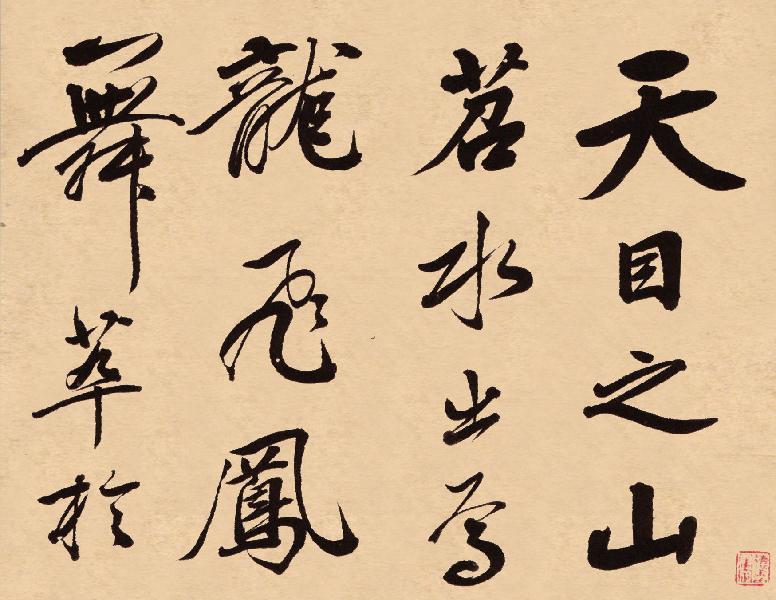 天目之山
苕水出焉
龍飛鳳
舞萃於